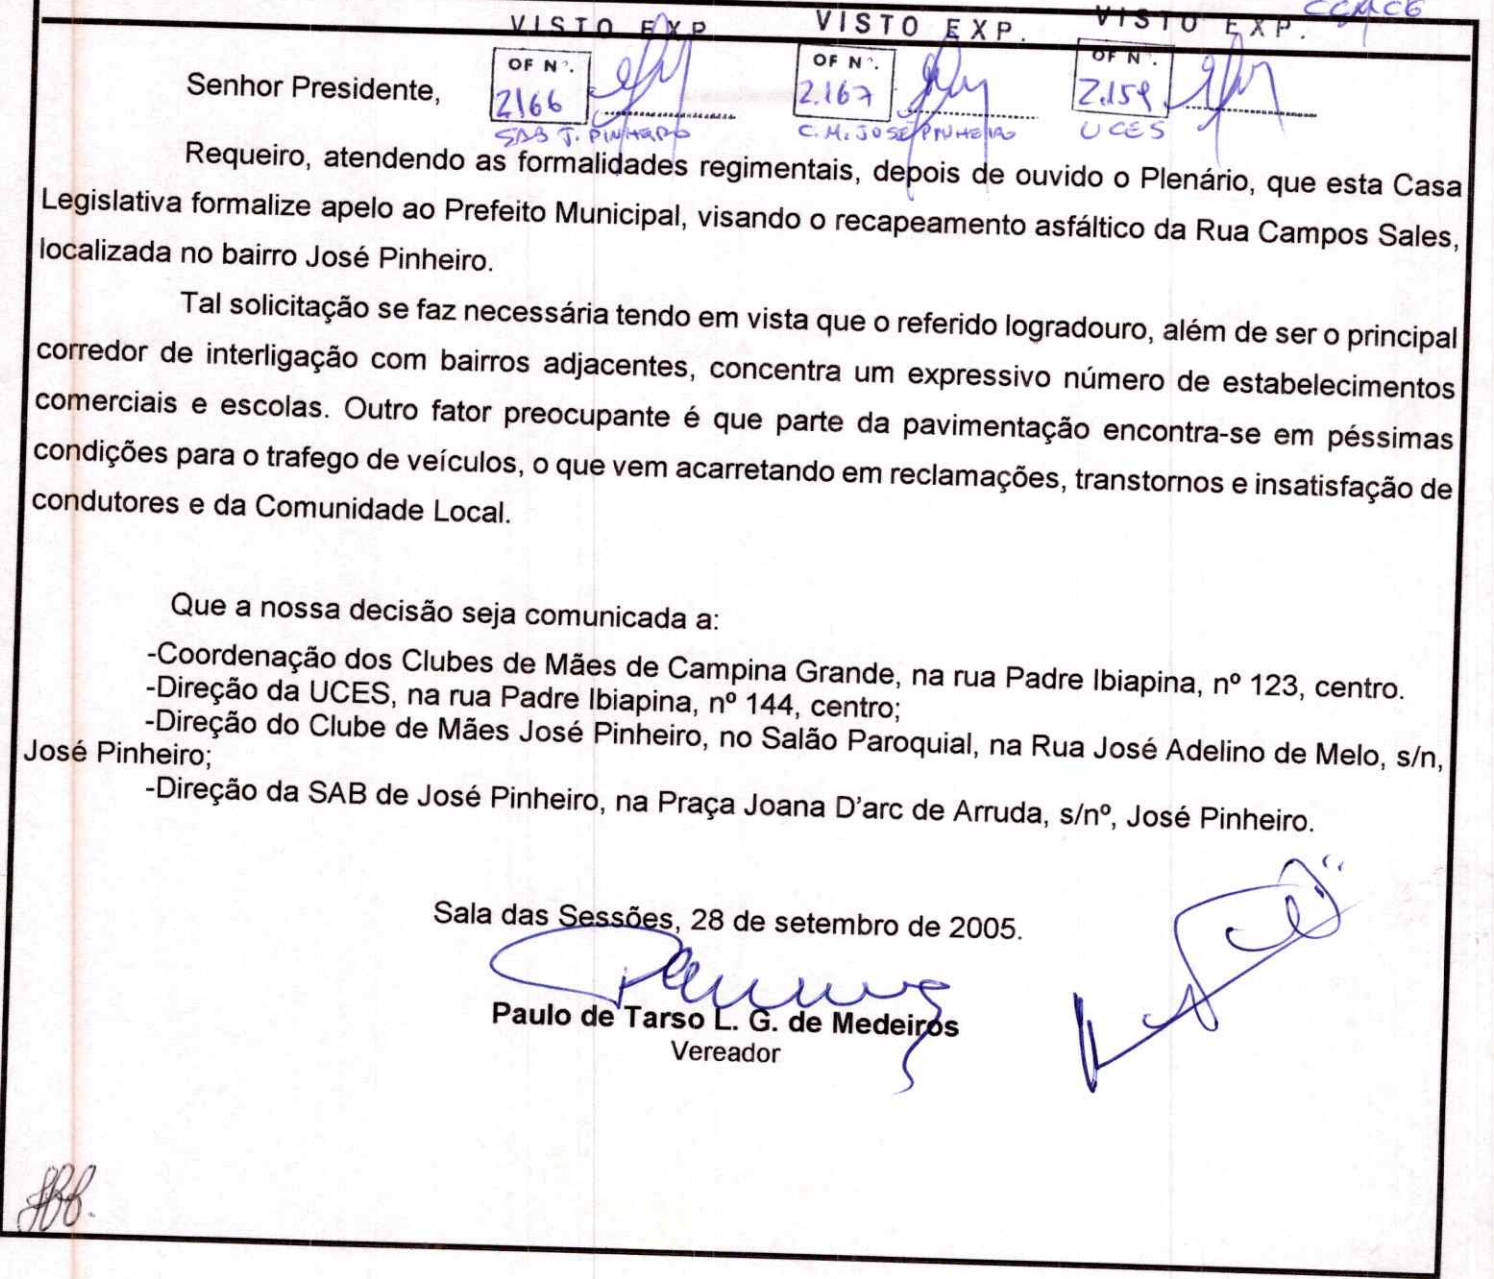 CCMCG
VISTO EXP VISTO EXP. VISTO EXP.
OF Nº. OF Nº. OF Nº.
Senhor Presidente,
2166 2.167 2.159
SAB J. PINHEIRO C.M. JOSE PINHEIRO UCES
Requeiro, atendendo as formalidades regimentais, depois de ouvido o Plenário, que esta Casa
Legislativa formalize apelo ao Prefeito Municipal, visando o recapeamento asfáltico da Rua Campos Sales,
localizada no bairro José Pinheiro.
Tal solicitação se faz necessária tendo em vista que o referido logradouro, além de ser o principal
corredor de interligação com bairros adjacentes, concentra um expressivo número de estabelecimentos
comerciais e escolas. Outro fator preocupante é que parte da pavimentação encontra-se em péssimas
condições para o trafego de veículos, o que vem acarretando em reclamações, transtornos e insatisfação de
condutores e da Comunidade Local.
Que a nossa decisão seja comunicada a:
-Coordenação dos Clubes de Mães de Campina Grande, na rua Padre Ibiapina, nº 123, centro.
-Direção da UCES, na rua Padre Ibiapina, nº 144, centro;
-Direção do Clube de Mães José Pinheiro, no Salão Paroquial, na Rua José Adelino de Melo, s/n,
José Pinheiro;
-Direção da SAB de José Pinheiro, na Praça Joana D'arc de Arruda, s/nº, José Pinheiro.
Sala das Sessões, 28 de setembro de 2005.
Paulo de Tarso L. G. de Medeiros
Vereador